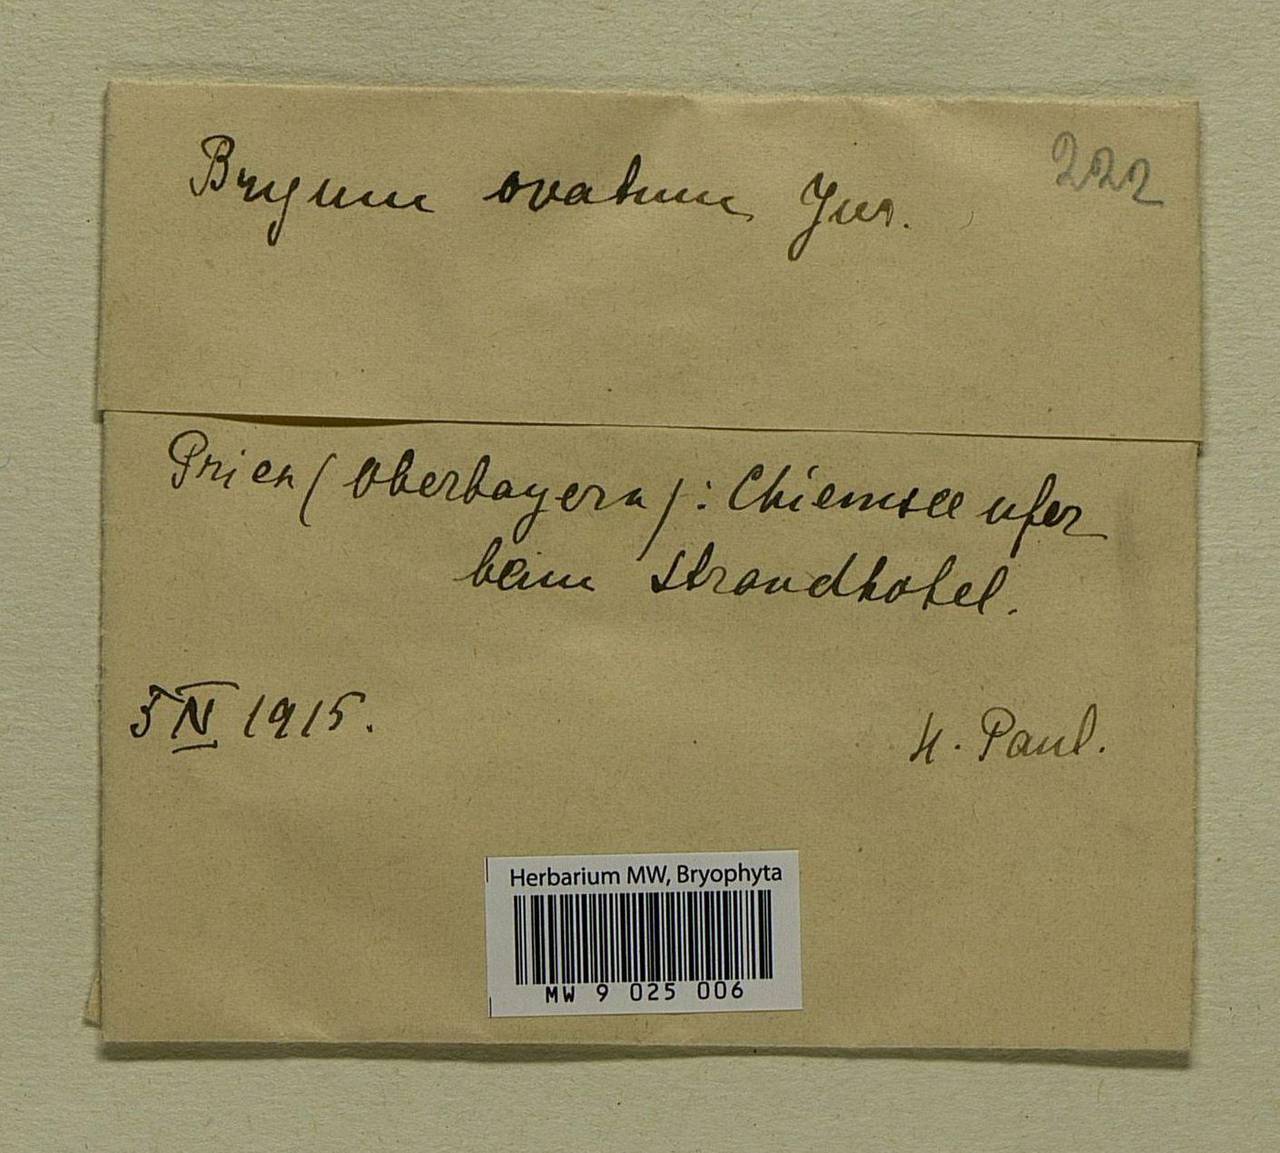 Bryum ovatum Jur.
222
Prien (Oberbayern): Chiemsee ufer
beim Strandhotel.
5 IV 1915.
H. Paul.
Herbarium MW, Bryophyta
MW 9 025 006